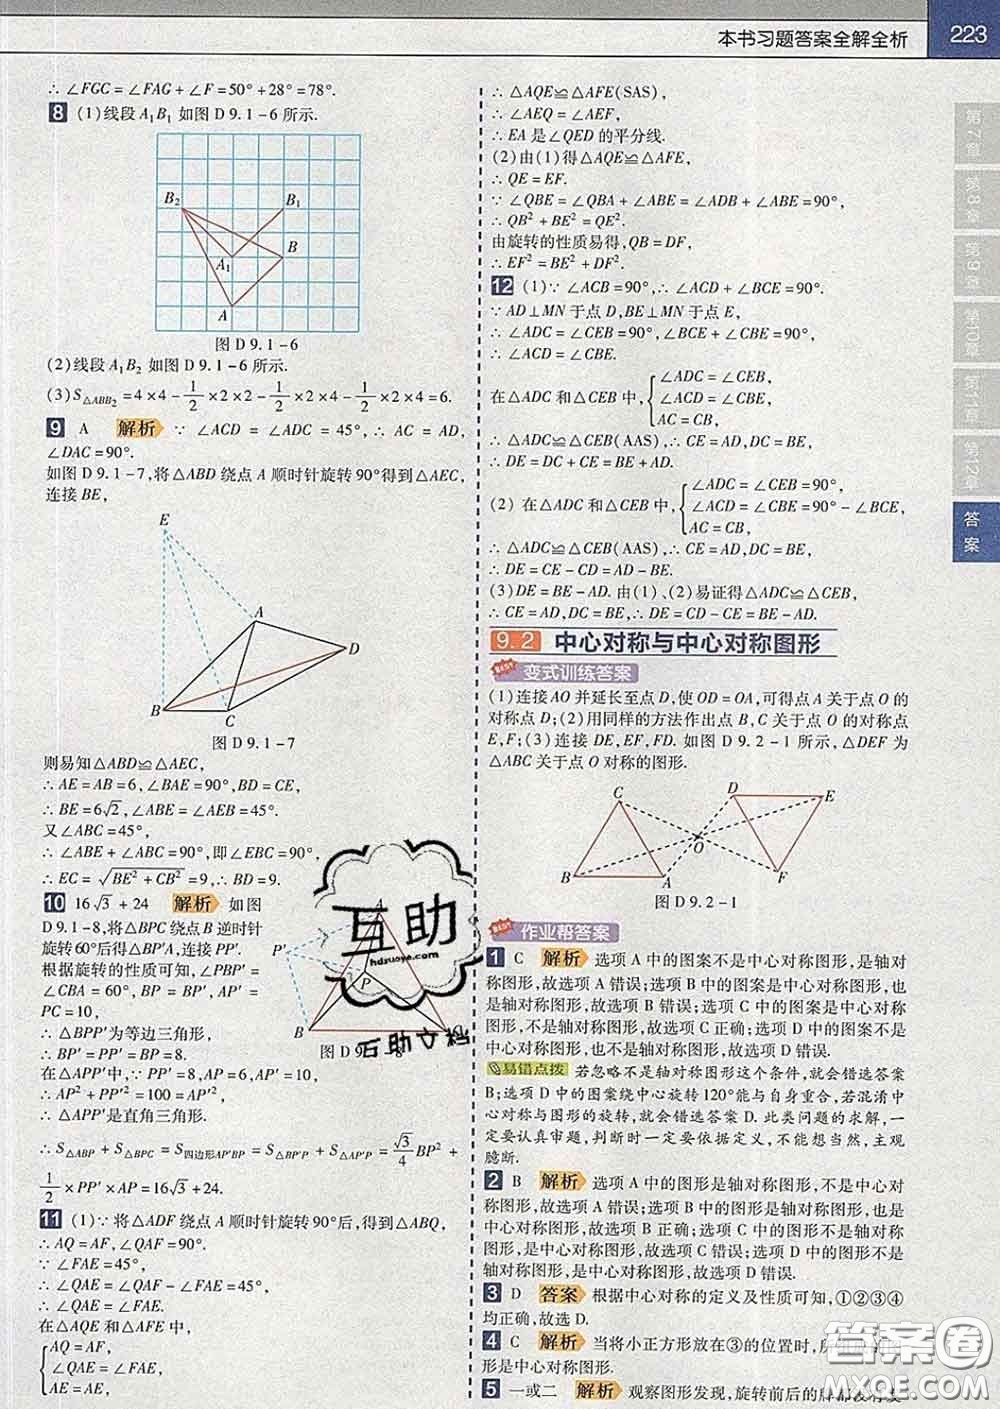 本书习题答案全解全析
223
∴ ∠FGC = ∠FAG + ∠F = 50° + 28° = 78°.
8 (1)线段 A₁B₁ 如图 D 9.1-6 所示.
B₂
B₁
B
A₁
A
图 D 9.1-6
(2)线段 A₁B₂ 如图 D 9.1-6 所示.
(3) S△ABB₂ = 4×4 - 1/2×2×2 - 1/2×2×4 - 1/2×2×4 = 6.
9 A 解析 ∵ ∠ACD = ∠ADC = 45°, ∴ AC = AD,
∠DAC = 90°.
如图 D 9.1-7,将△ABD 绕点 A 顺时针旋转 90°得到△AEC,
连接 BE,
E
A
D
B
C
图 D 9.1-7
则易知△ABD≌△AEC,
∴ AE = AB = 6, ∠BAE = 90°, BD = CE,
∴ BE = 6√2, ∠ABE = ∠AEB = 45°.
又∠ABC = 45°,
∴ ∠ABC + ∠ABE = 90°,即∠EBC = 90°,
∴ EC = √(BE² + CB²) = 9, ∴ BD = 9.
10 16√3 + 24 解析 如图
D 9.1-8,将△BPC 绕点 B 逆时针
旋转 60°后得△BP'A,连接 PP'.
根据旋转的性质可知,∠PBP' =
∠CBA = 60°, BP = BP', AP' =
PC = 10,
∴ △BPP'为等边三角形,
∴ BP' = PP' = BP = 8.
在△APP'中, ∵ PP' = 8, AP = 6, AP' = 10,
∴ AP² + PP'² = 100 = AP'²,
∴ △APP'是直角三角形.
∴ S△ABP + S△BPC = S四边形AP'BP = S△BP'P + S△AP'P = √3/4 BP² +
1/2 × PP' × AP = 16√3 + 24.
A
P'
P
B
图 D 9.1-8
11 (1)∵将△ADF 绕点 A 顺时针旋转 90°后,得到△ABQ,
∴ AQ = AF, ∠QAF = 90°.
∵ ∠FAE = 45°,
∴ ∠QAE = ∠QAF - ∠FAE = 45°,
∴ ∠QAE = ∠FAE.
在△AQE 和△AFE 中,
AQ = AF,
∠QAE = ∠FAE,
AE = AE,
∴ △AQE≌△AFE(SAS),
∴ ∠AEQ = ∠AEF,
∴ EA 是∠QED 的平分线.
(2)由(1)得△AQE≌△AFE,
∴ QE = EF.
∵ ∠QBE = ∠QBA + ∠ABE = ∠ADB + ∠ABE = 90°,
∴ QB² + BE² = QE².
由旋转的性质易得,QB = DF,
∴ EF² = BE² + DF².
12 (1)∵ ∠ACB = 90°, ∴ ∠ACD + ∠BCE = 90°.
∵ AD⊥MN 于点 D,BE⊥MN 于点 E,
∴ ∠ADC = ∠CEB = 90°, ∠BCE + ∠CBE = 90°,
∴ ∠ACD = ∠CBE.
在△ADC 和△CEB 中,
∠ADC = ∠CEB,
∠ACD = ∠CBE,
AC = CB,
∴ △ADC≌△CEB(AAS), ∴ CE = AD, DC = BE,
∴ DE = DC + CE = BE + AD.
(2) 在△ADC 和△CEB 中,
∠ADC = ∠CEB = 90°,
∠ACD = ∠CBE = 90° - ∠BCE,
AC = CB,
∴ △ADC≌△CEB(AAS), ∴ CE = AD, DC = BE,
∴ DE = CE - CD = AD - BE.
(3) DE = BE - AD. 由(1)、(2)易证得△ADC≌△CEB,
∴ CE = AD, DC = BE, ∴ DE = CD - CE = BE - AD.
9.2 中心对称与中心对称图形
变式训练答案
(1)连接 AO 并延长至点 D,使 OD = OA,可得点 A 关于点 O 的
对称点 D;(2)用同样的方法作出点 B,C 关于点 O 的对称点
E,F;(3)连接 DE,EF,FD. 如图 D 9.2-1 所示,△DEF 为
△ABC 关于点 O 对称的图形.
C
D
E
O
B
A
F
图 D 9.2-1
作业帮答案
1 C 解析 选项 A 中的图案不是中心对称图形,是轴对
称图形,故选项 A 错误;选项 B 中的图案是中心对称图形,
也是轴对称图形,故选项 B 错误;选项 C 中的图案是中心对
称图形,不是轴对称图形,故选项 C 正确;选项 D 中的图案不
是中心对称图形,也不是轴对称图形,故选项 D 错误.
易错点拨 若忽略不是轴对称图形这个条件,就会错选答案
B;选项 D 中的图案绕中心旋转 120°能与自身重合,若混淆中
心对称与图形的旋转,就会错选答案 D. 此类问题的求解,一
定要认真审题,判断时一定要依据定义,不能想当然,主观
臆断.
2 B 解析 选项 A 中的图形是轴对称图形,不是中心对
称图形,故选项 A 错误;选项 B 中的图形是轴对称图形,也是
中心对称图形,故选项 B 正确;选项 C 中的图形不是轴对称
图形,是中心对称图形,故选项 C 错误;选项 D 中的图形不是
轴对称图形,故选项 D 错误.
3 D 答案 根据中心对称的定义及性质可知,①②③④
均正确,故选 D.
4 C 解析 当将小正方形放在③的位置时,所
形是中心对称图形.
5 一或二 解析 观察图形发现,旋转前后的牌都没有
第7章
第8
第9章
第10章
第11章
第12章
答案
互助
hdzuoye.com
互助文
答案圈
MXQE.COM